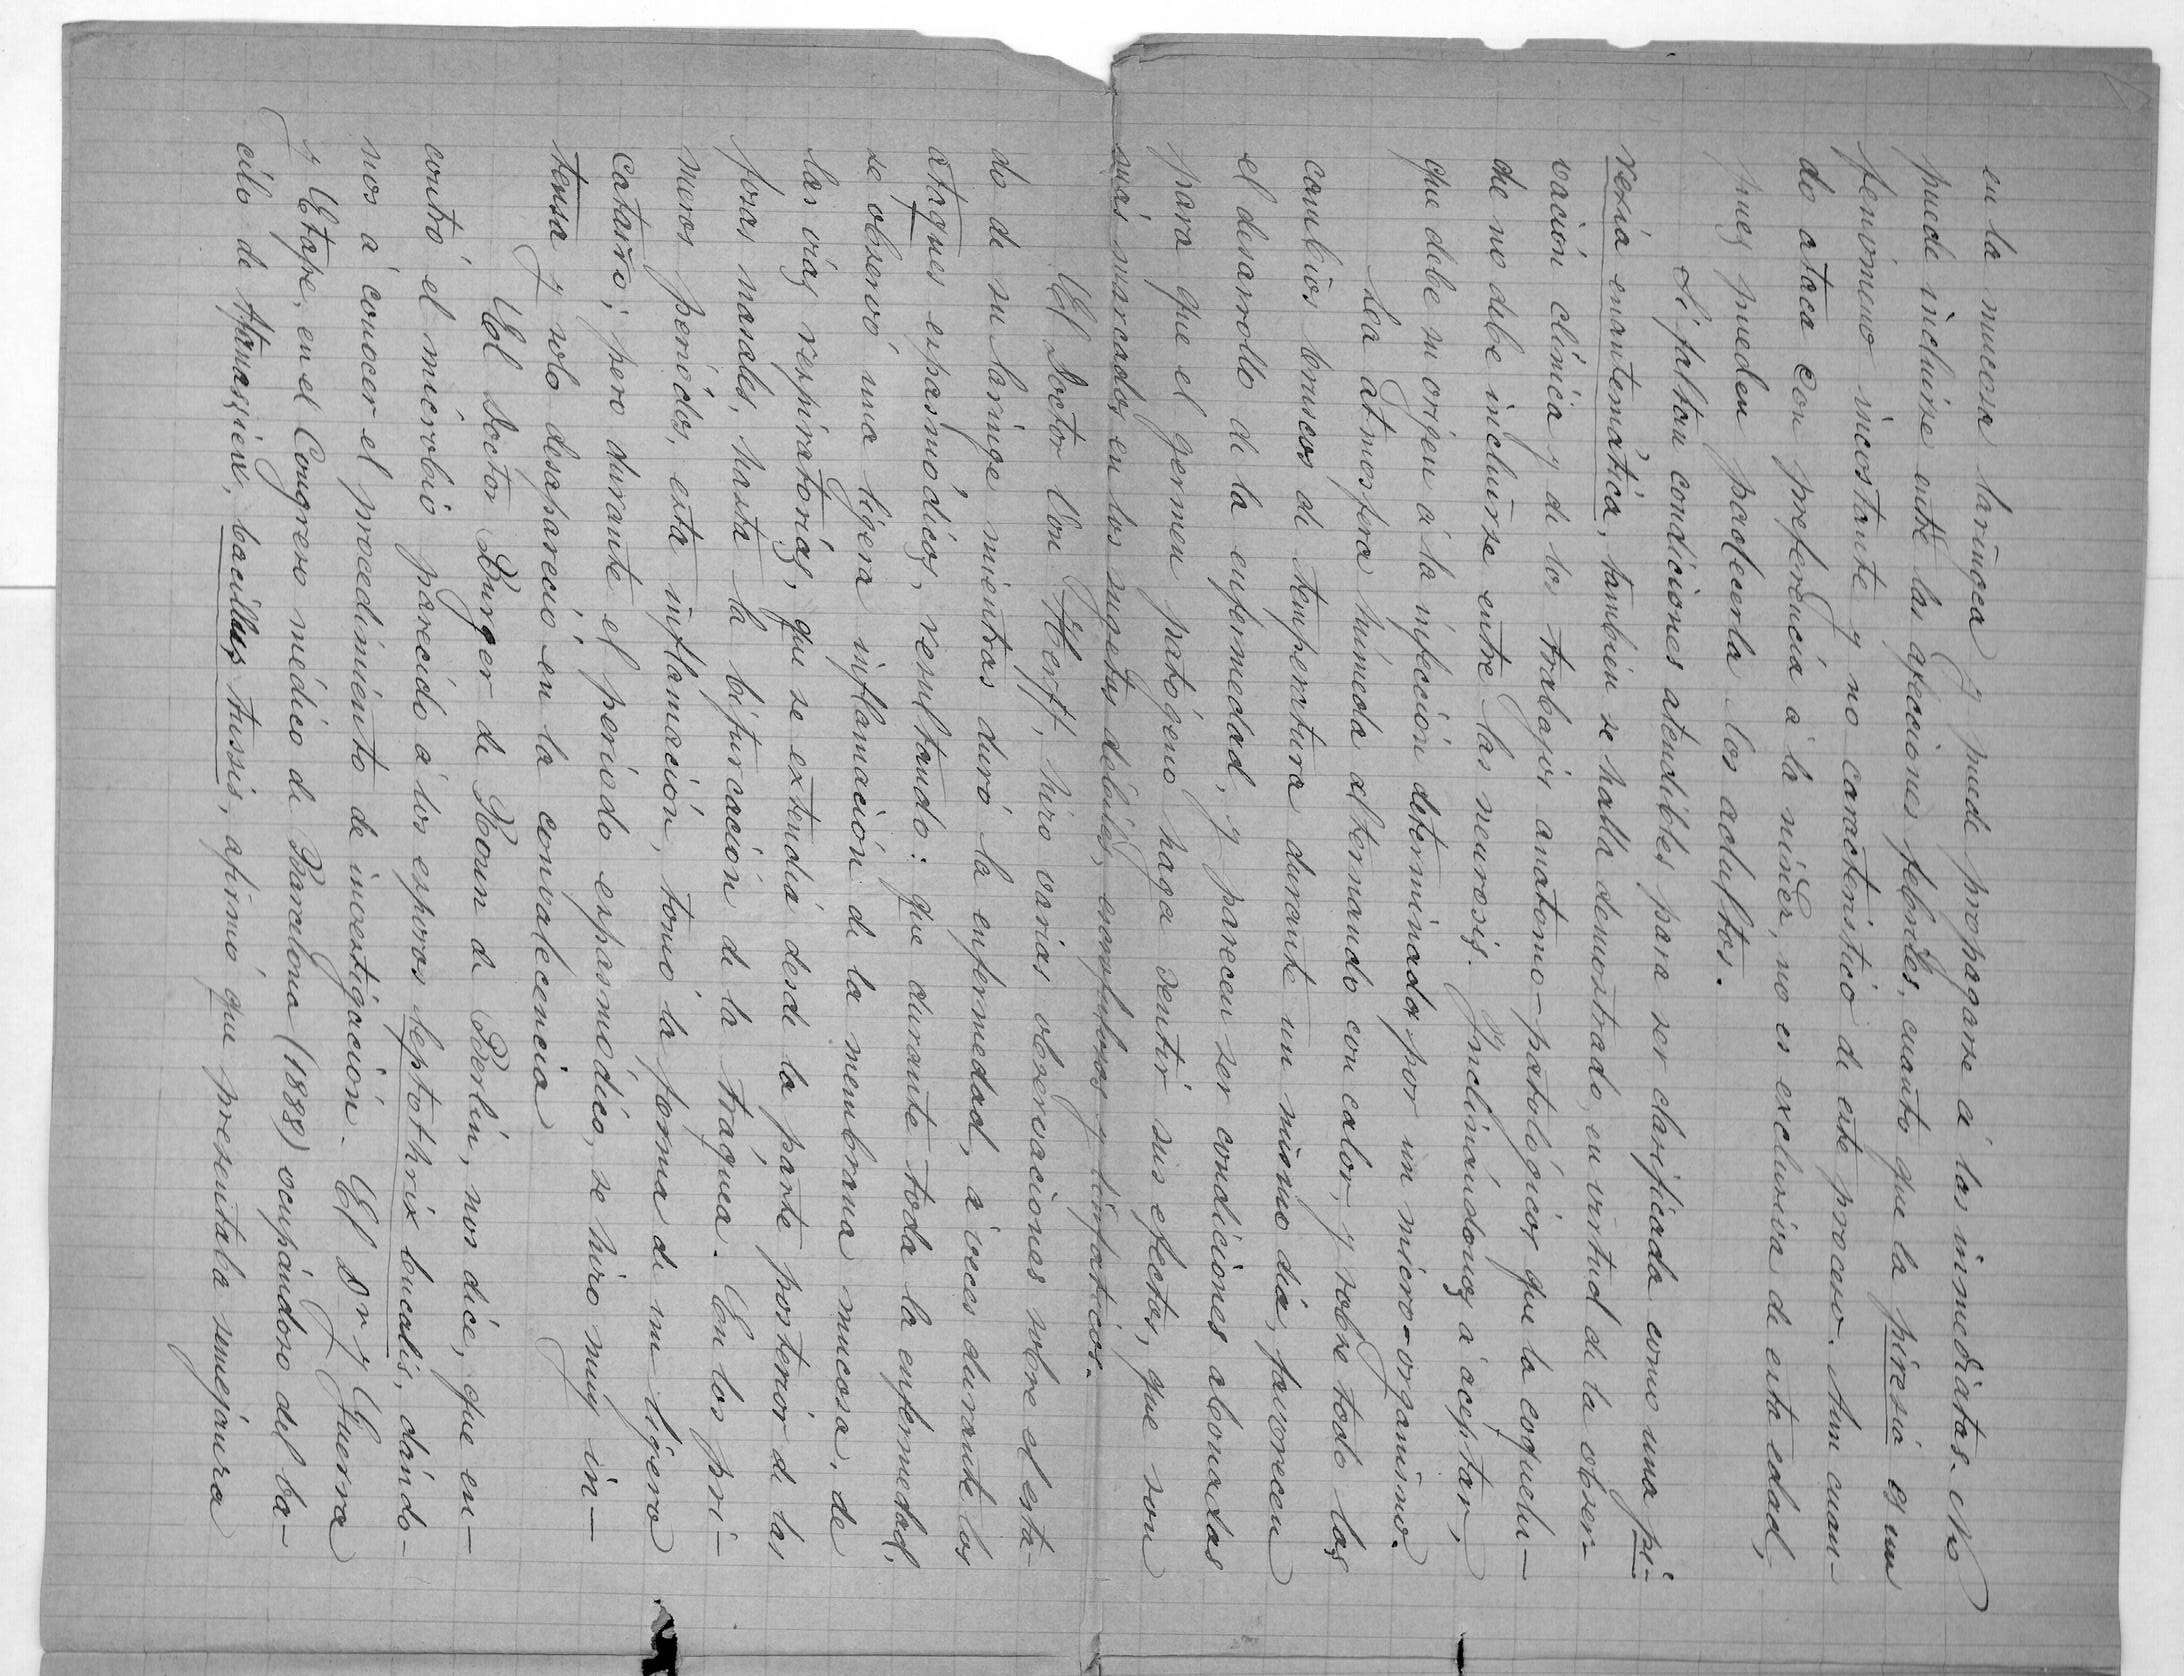 en la mucosa laringea y puede propagarse á las inmediatas. No
puede incluirse entre las afecciones febriles, cuanto que la piresia es un
fenómeno incostante y no característico de este proceso. Aun cuan-
do ataca con preferencia á la niñez, no es exclusiva de esta edad,
pues pueden padecerla los adultos.
Si faltan condiciones atendibles para ser clarificada como una pi-
resia enantemática, tambien se halla demostrado, en virtud de la obser-
vación clínica y de los trabajos anatomo-patológicos que la coquelu-
che no debe incluirse entre las neurosis. Inclinándonos á aceptar,
que debe su origen á la infección determinada por un micro-organismo.
La atmosfera húmeda alternando con calor, y sobre todo los
cambios bruscos de temperatura durante un mismo dia, favorecen
el desarrollo de la enfermedad, y parecen ser condiciones abonadas
para que el germen patógeno haga sentir sus efectos, que son
más marcados en los sugetos débiles, escrofulosos y linfaticos.
El Doctor Von Herff, hizo varias observaciones sobre el esta-
do de su laringe mientras duró la enfermedad, á veces durante los
ataques espasmódicos, resultando: que durante toda la enfermedad,
se observó una ligera inflamación de la membrana mucosa, de
las vias respiratorias, que se extendia desde la parte posterior de las
fosas nasales, hasta la bifurcación de la tráquea. En los pri-
meros periódos, esta inflamación, tomó la forma de un ligero
catarro; pero durante el periodo espasmódico, se hizo muy in-
tensa y solo desapareció en la convalecencia
El Doctor Burger de Boun de Berlin, nos dice, que en-
contró el microbio parecido á los esporos leptothrix bucalis, dándo-
nos á conocer el procedimiento de investigación. El Dr y Guerra
y Estape, en el Congreso médico de Barcelona (1888) ocupándose del ba-
cilo de Afanassiew, bacillus tussis, afirmó que presentaba semejanza